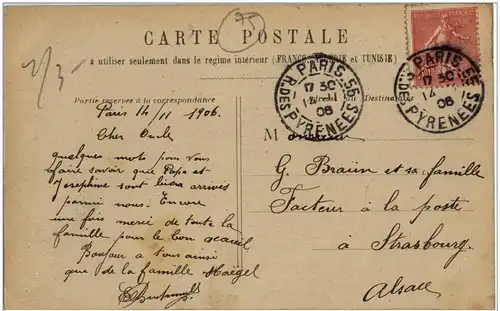 75
2/3-
CARTE POSTALE
à utiliser seulement dans le régime intérieur (FRANCE, ALGÉRIE et TUNISIE)
PARIS 56
17 30
14 -11
06
R. DES PYRENEES
PARIS 56
17 30
14
06
R. DES PYRENEES
Partie réservée à la correspondance
Adresse du Destinataire
Paris 14/11 1906.
Cher Oncle
quelques mots pour vous
faire savoir que Papa et
Josephine sont bien arrivés
parmi nous. Encore
une fois merci de toute la
famille pour le bon acceuil
Bonjour a tous ainsi
que de la famille Haegel
Monsieur
G. Braün et sa famille
Facteur à la poste
à Strasbourg.
Alsace